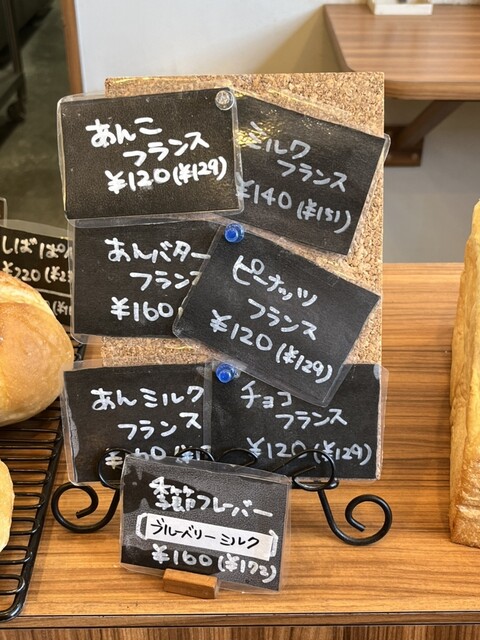 あんこ
フランス
¥120(¥129)
ミルク
フランス
¥140(¥151)
あんバター
フランス
¥160
ピーナッツ
フランス
¥120(¥129)
あんミルク
フランス
チョコ
フランス
¥120(¥129)
季節フレーバー
ブルーベリーミルク
¥160(¥173)
しばぱん